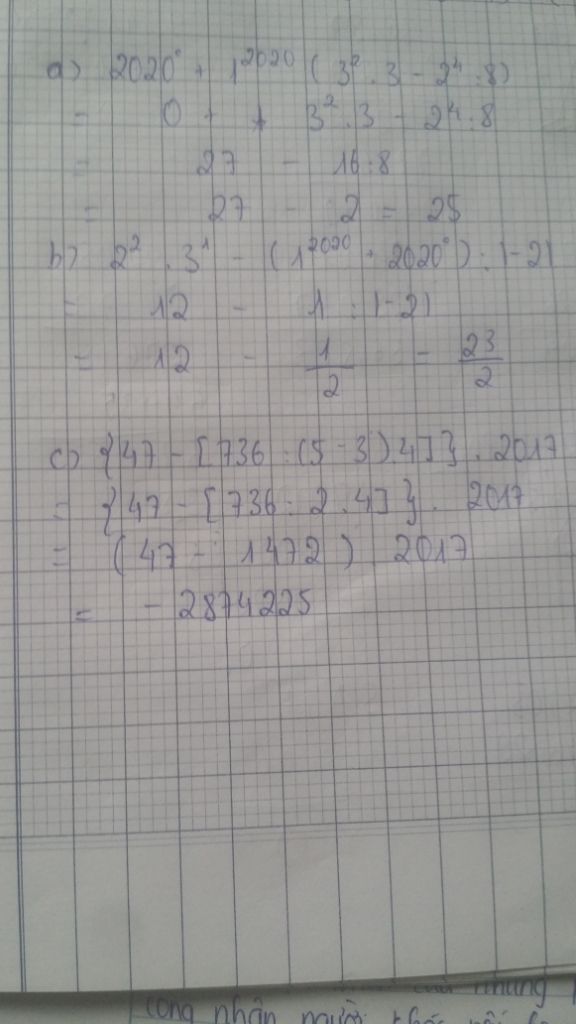 a) 2020⁰ + 1²⁰²⁰ ( 3² . 3 - 2⁴ : 8)
= 0 + 1 3² . 3 - 2⁴ : 8
= 27 - 16 : 8
= 27 - 2 = 25
b) 2² . 3¹ - (1²⁰²⁰ + 2020⁰) : |-2|
= 12 - 1 : |-2|
= 12 - 1/2 = 23/2
c) {47 - [736 : (5 - 3) . 4]} . 2017
= {47 - [736 : 2 . 4]} . 2017
= (47 - 1472) 2017
= - 2874225
công nhân người